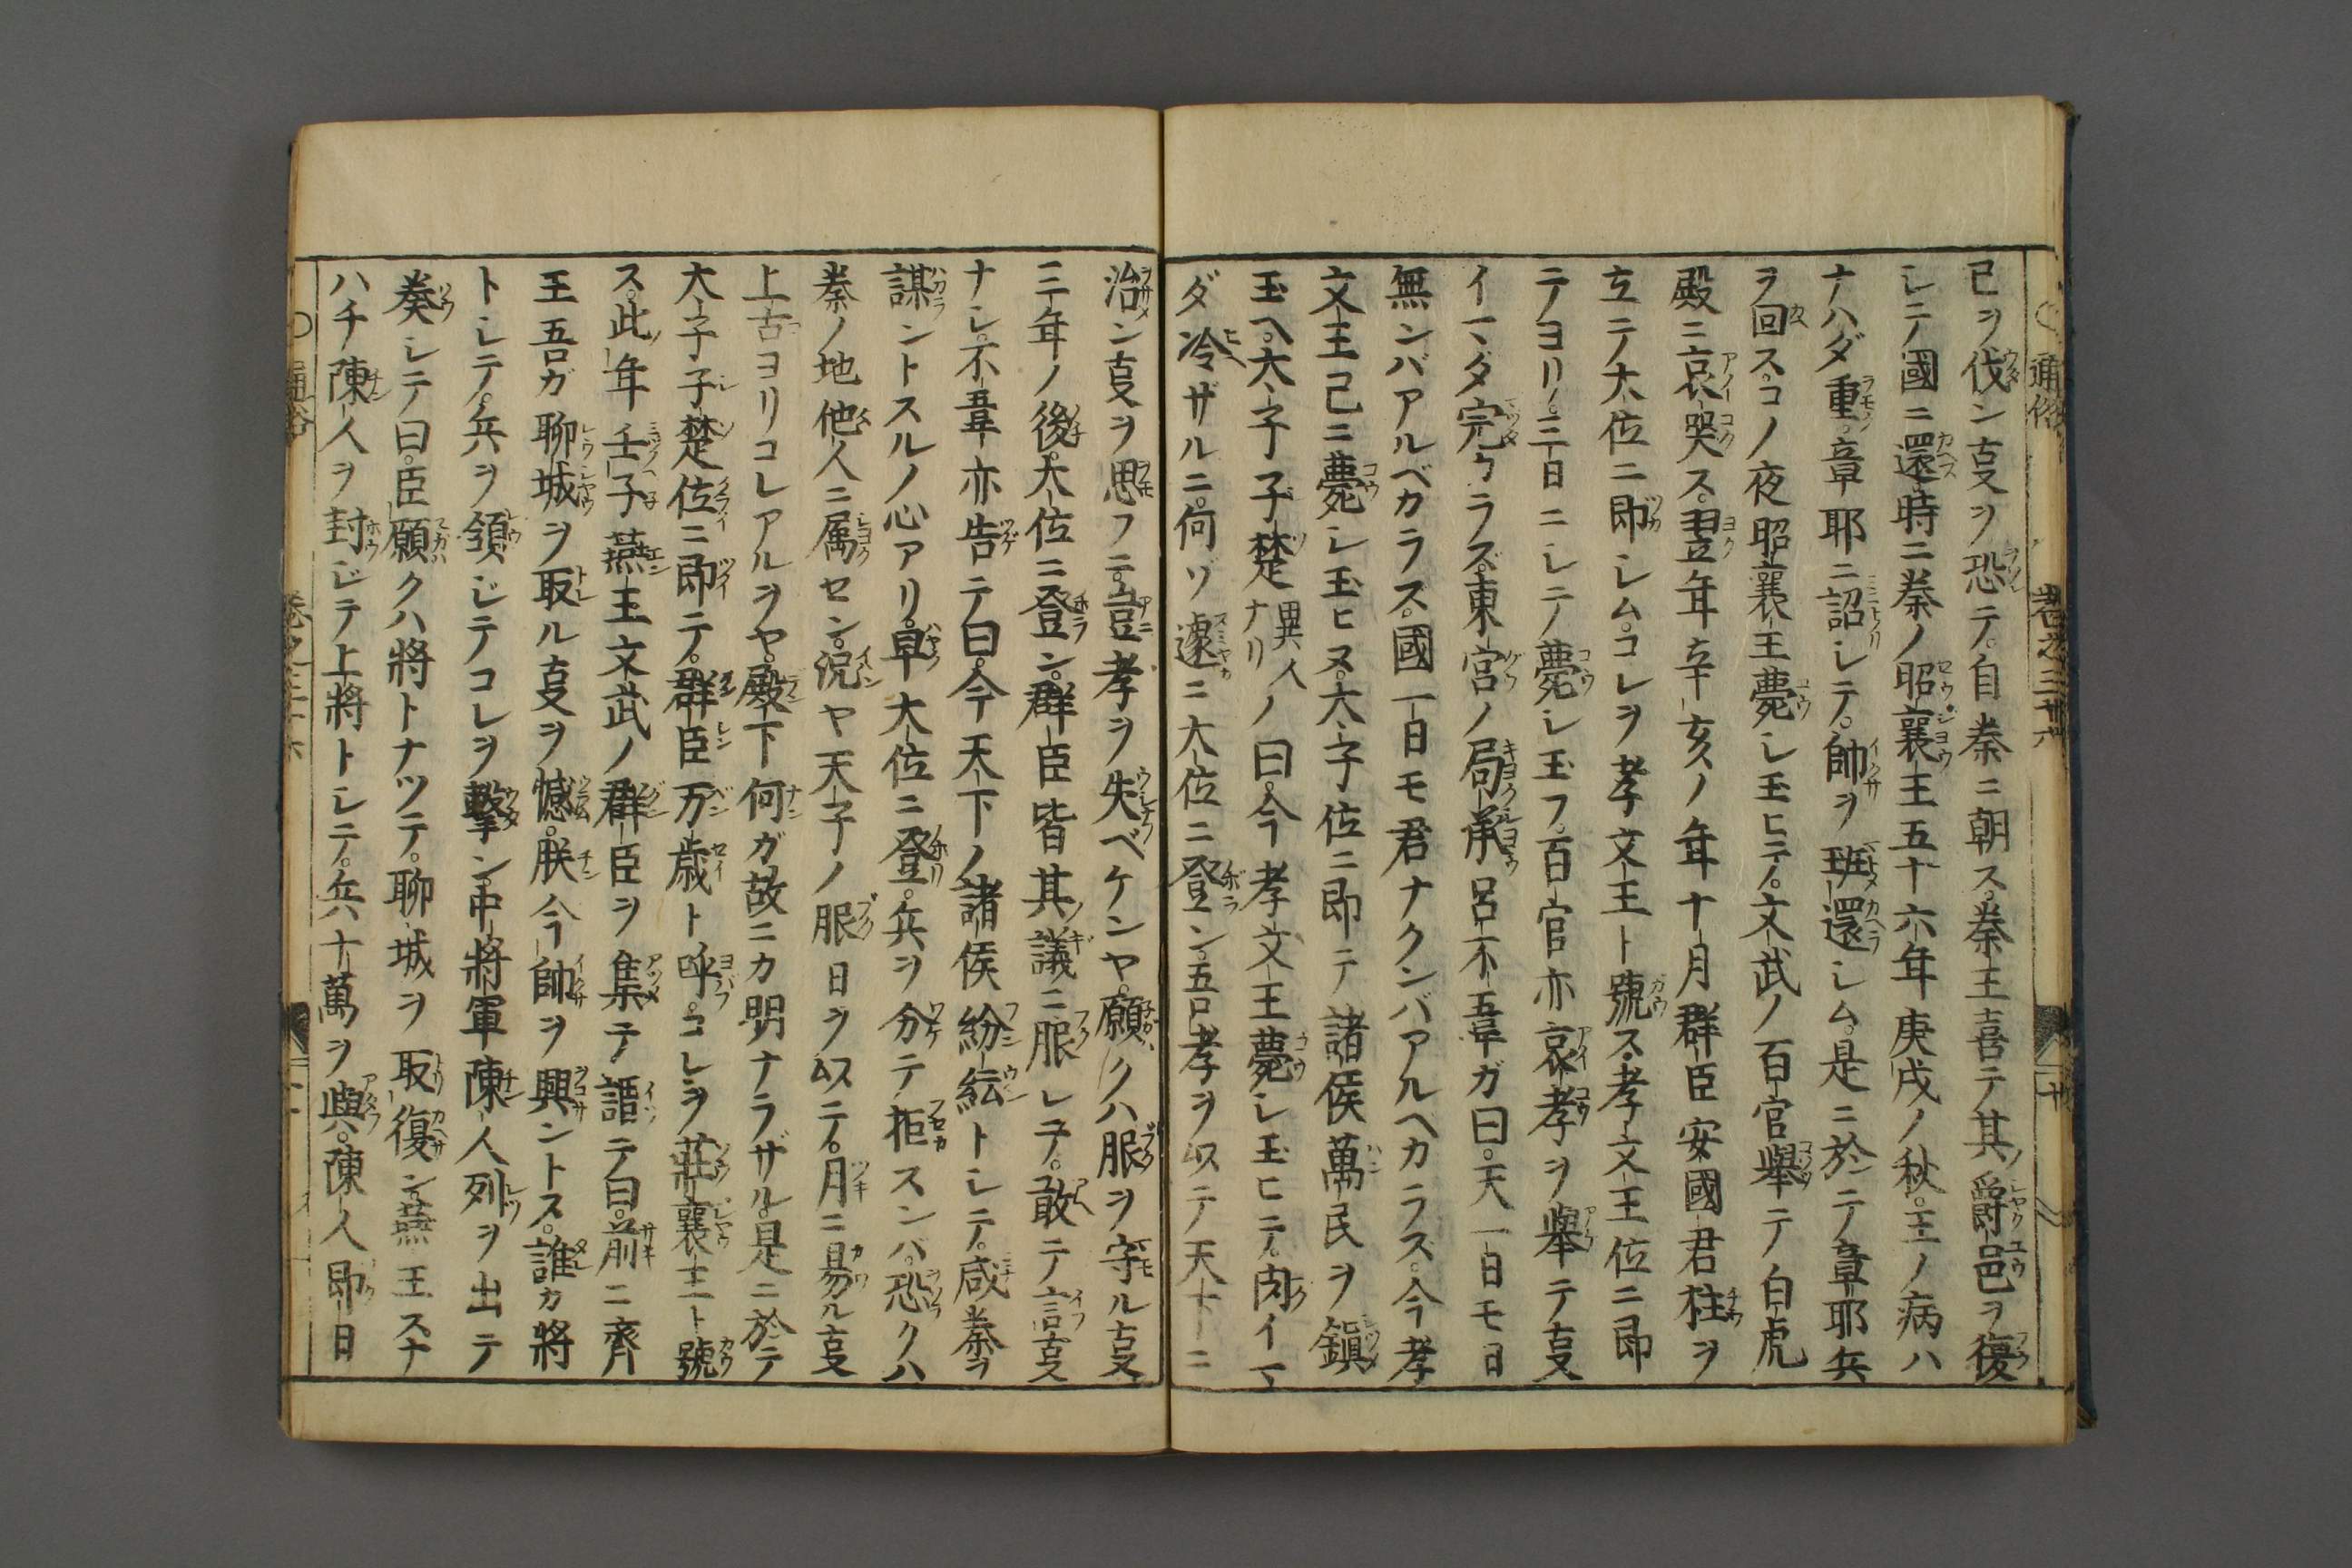 通俗 卷之三十六 二十
己ヲ伐ン叓ヲ恐テ。自秦ニ朝ス。秦王喜テ其爵邑ヲ復
シテ國ニ還。時ニ秦ノ昭襄王五十六年庚戌ノ秋。王ノ病ハ
ナハダ重。章耶ニ詔シテ。帥ヲ班還シム。是ニ於テ章耶兵
ヲ回ス。コノ夜昭襄王薨シ玉ヒテ。文武ノ百官舉テ白虎
殿ニ哀哭ス。翌年辛亥ノ年十月群臣安國君柱ヲ
立テ大位ニ即シム。コレヲ孝文王ト號ス。孝文王位ニ即
テヨリ。三日ニシテ薨シ玉フ。百官亦哀孝ヲ舉テ叓
イマダ完カラズ。東宮ノ局承呂不韋ガ曰。天一日モ日
無ンバアルベカラス。國一日モ君ナクンバアルヘカラス。今孝
文王已ニ薨シ玉ヒヌ。太子位ニ即テ諸侯萬民ヲ鎭
玉ヘ。太子子楚異人ナリノ曰。今孝文王薨シ玉ヒテ。肉イマ
ダ冷ザルニ。何ゾ遽ニ大位ニ登ン。吾孝ヲ以テ天下ニ
治ン叓ヲ思フニ。豈孝ヲ失ベケンヤ。願クハ服ヲ守ル叓
三年ノ後。大位ニ登ン。群臣皆其議ニ服シテ。敢テ言叓
ナシ。不韋亦告テ曰。今天下ノ諸侯紛紜トシテ。咸秦ヲ
謀ントスルノ心アリ。早大位ニ登。兵ヲ分テ拒スンバ。恐クハ
秦ノ地他人ニ属セン。況ヤ天子ノ服日ヲ以テ。月ニ易ル叓
上古ヨリコレアルヲヤ。殿下何ガ故ニカ明ナラザル。是ニ於テ
大子子楚位ニ即テ。群臣万歳ト呼。コレヲ莊襄王ト號
ス。此年壬子燕王文武ノ群臣ヲ集テ語テ曰。前ニ齊
王吾ガ聊城ヲ取ル叓ヲ憾。朕今帥ヲ興ントス。誰カ將
トシテ。兵ヲ領ジテコレヲ擊ン。中將軍陳人列ヲ出テ
奏シテ曰。臣願クハ將トナツテ。聊城ヲ取復ン。燕王スナ
ハチ陳人ヲ封ジテ上將トシテ。兵六十萬ヲ與。陳人即日
通俗 卷之三十六